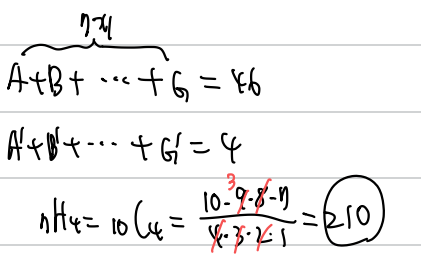 7개
A+B+ ⋯ +G = 46
A'+B'+ ⋯ + G' = 4
7H4 = 10C4 = 10·9·8·7 / 4·3·2·1 = 210
3